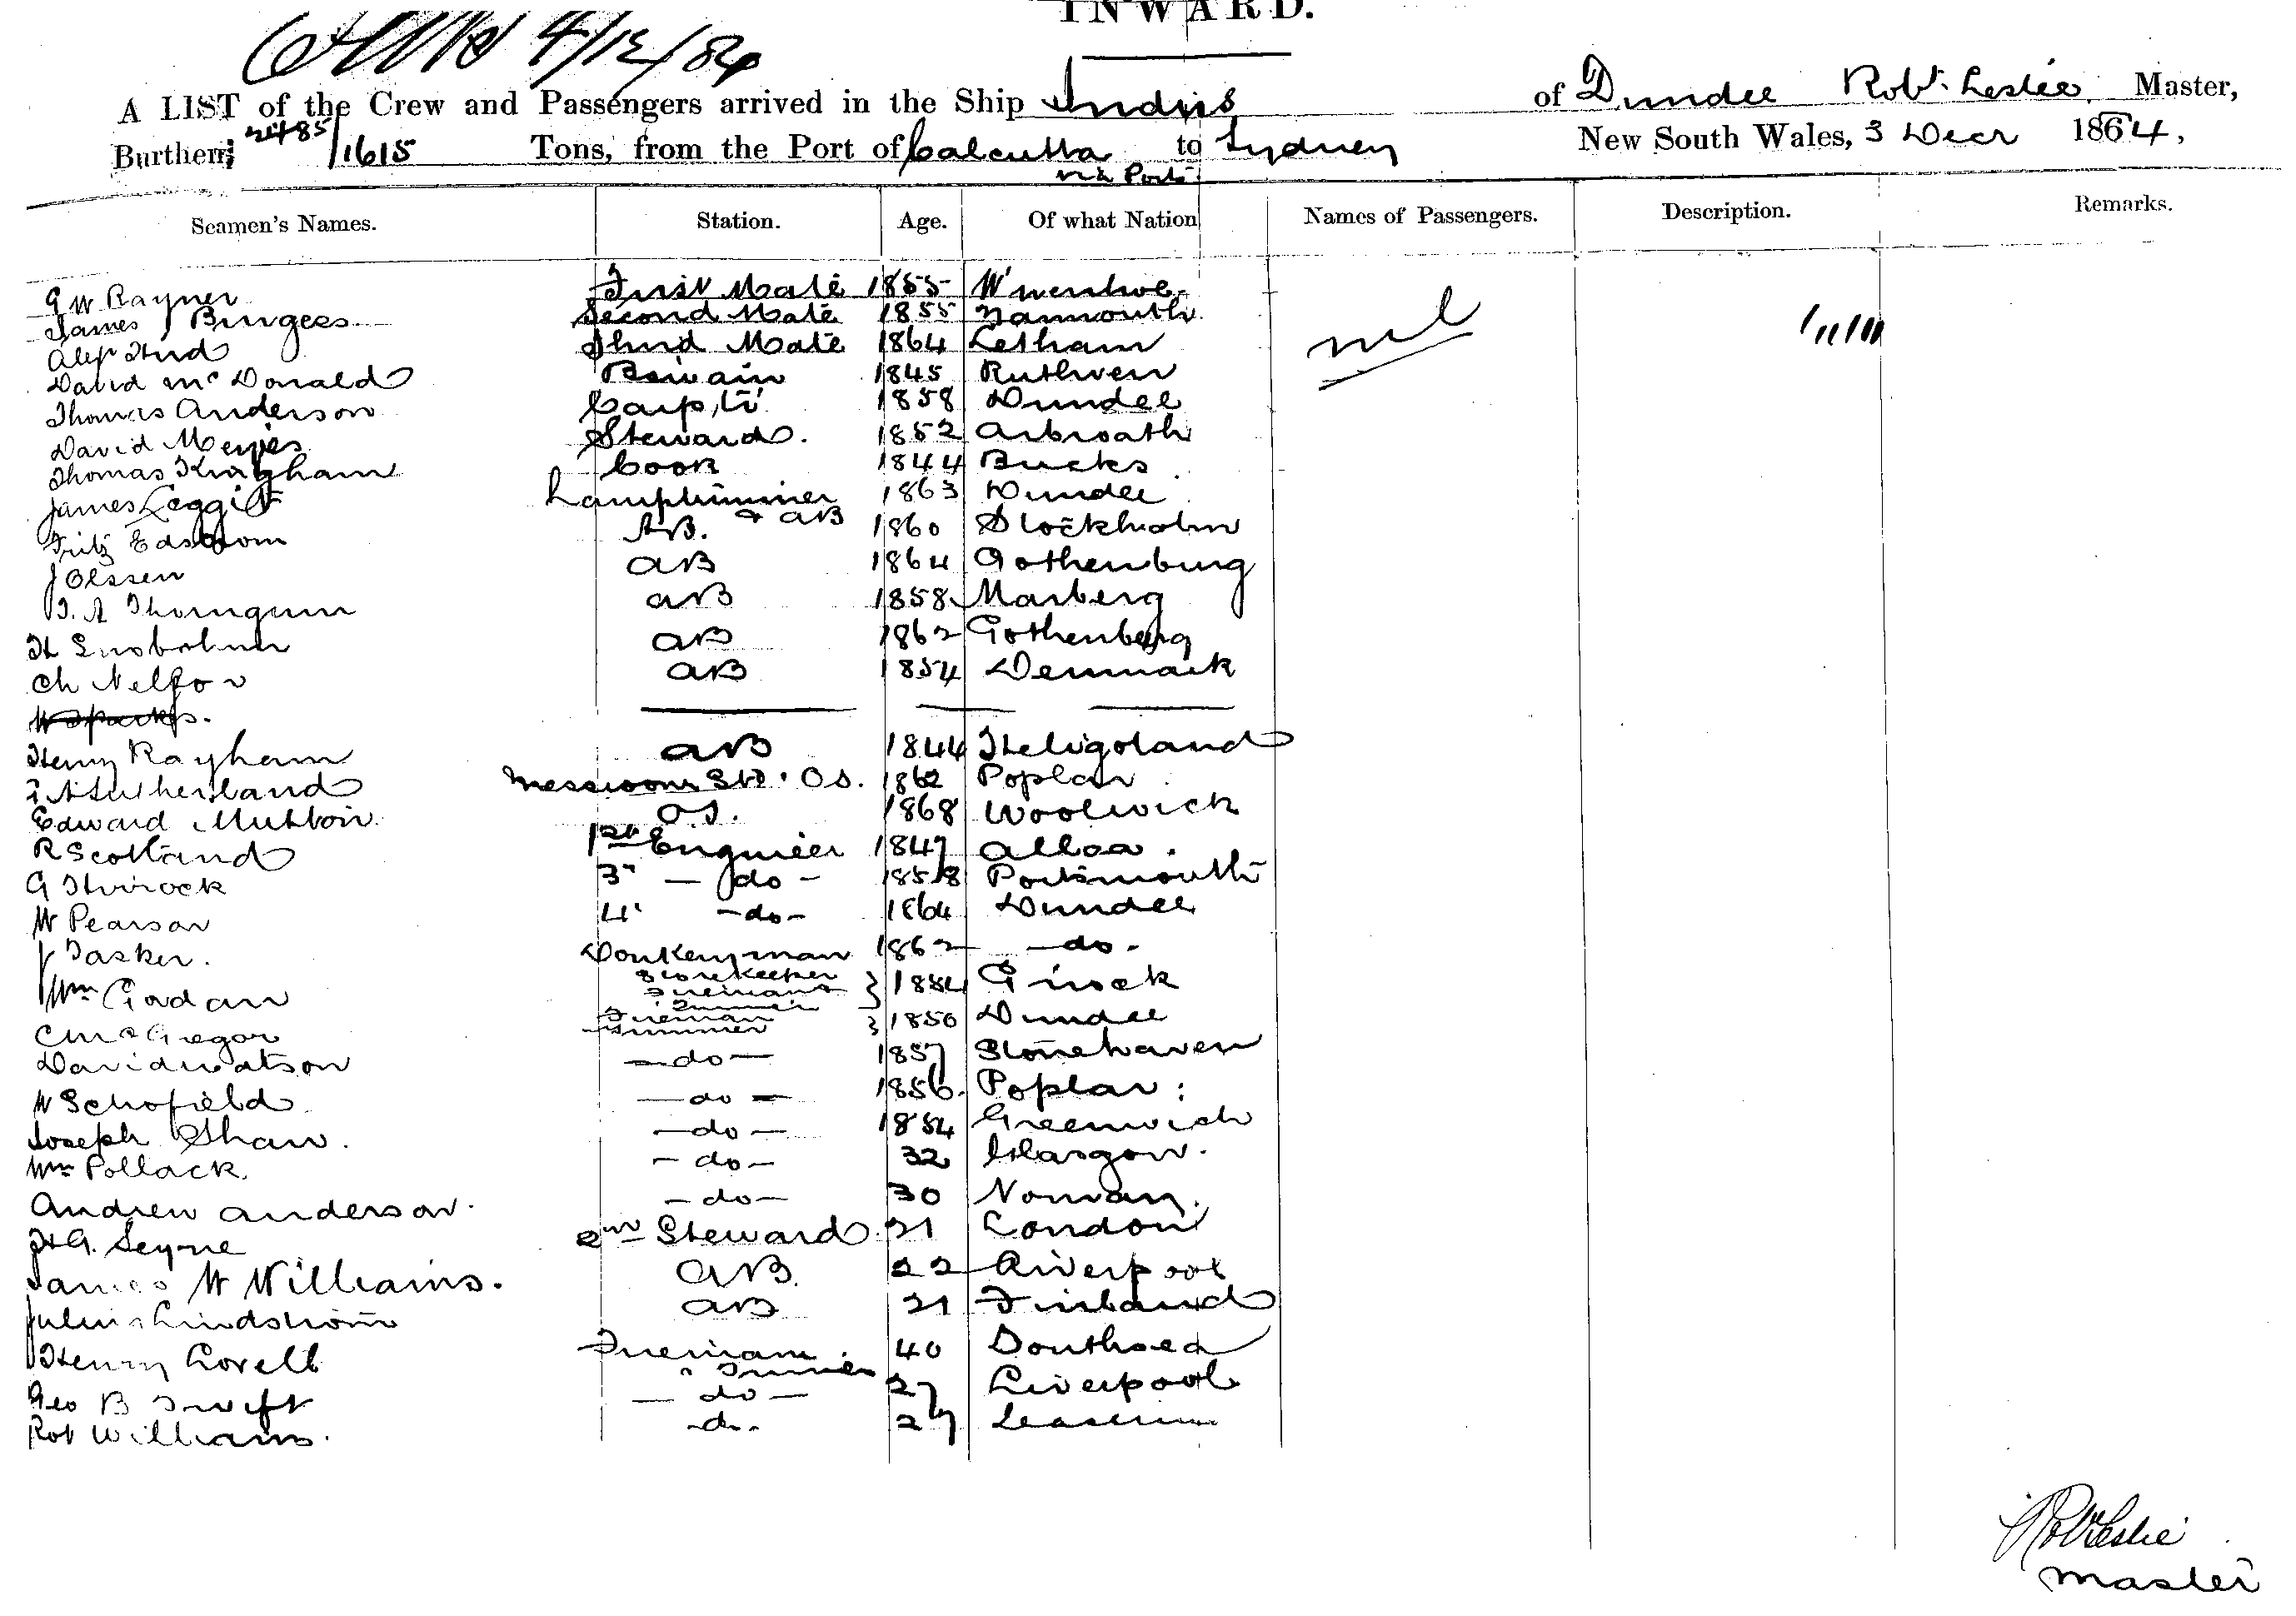 INWARD.
4/12/84
A LIST of the Crew and Passengers arrived in the Ship Indus of Dundee Robt. Leslie Master,
Burthen, 2485/1615 Tons, from the Port of Calcutta to Sydney New South Wales, 3 Decr 1864,
via Ports
Seamen's Names. Station. Age. Of what Nation Names of Passengers. Description. Remarks.
G W Rayner First Mate 1855 Wivenhoe nil
James Burgess Second Mate 1855 Yarmouth
Third Mate 1864 Letham
David McDonald Boswain 1845 Ruthven
Thomas Anderson Carp,tr 1858 Dundee
David Steward. 1852 Arbroath
Thomas Kingham Cook 1844 Bucks
James Leggitt Lamptrimmer & AB 1863 Dundee
Fritz Edstrom AB. 1860 Stockholm
J Olssen AB 1864 Gothenburg
AB 1858 Marberg
AB 1862 Gothenburg
Ch AB 1854 Denmark
W Sparks.
Henry Rayham AB 1844 Heligoland
Sutherland Messroom Std. OS. 1862 Poplar
Edward Mutton OS. 1868 Woolwich
R Scotland 1st Engineer 1847 Alloa.
G 3" - do - 1858 Portsmouth
W Pearson 4" - do - 1864 Dundee
J Tasker. Donkeyman 1862 - do -
Wm Storekeeper Fireman & Trimmer } 1884
C McGregor Fireman Trimmer } 1850 Dundee
David Watson - do - 1857 Stonehaven
W Schofield - do - 1856. Poplar
Joseph Shaw. - do - 1854 Greenwich
Wm Pollack. - do - 32 Glasgow.
Andrew Anderson. - do - 30 Norway.
H.G. 2nd Steward 21 London
James W Williams. AB. 22 Liverpool
Julius Lindstrom AB 21 Finland
Henry Lovell Fireman & Trimmer 40 Southsea
Geo B Swift - do - 27 Liverpool
Rob Williams. - do - 27
Robt Leslie
Master